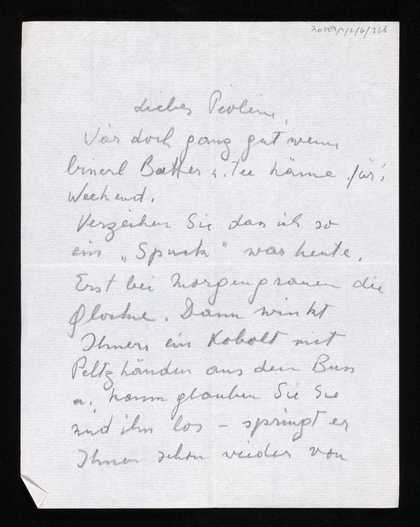 Liebes
Wär doch ganz gut wenn
Butter u. Tee käme für's
Weekend.
Verzeihen Sie das ich so
ein „Spuck“ war heute.
Erst bei Morgengrauen die
Glocke. Dann winkt
Ihnen ein Kobolt mit
Peltzhänden aus dem Buss
u. kaum glauben Sie Sie
sind ihn los – springt er
Ihnen schon wieder von